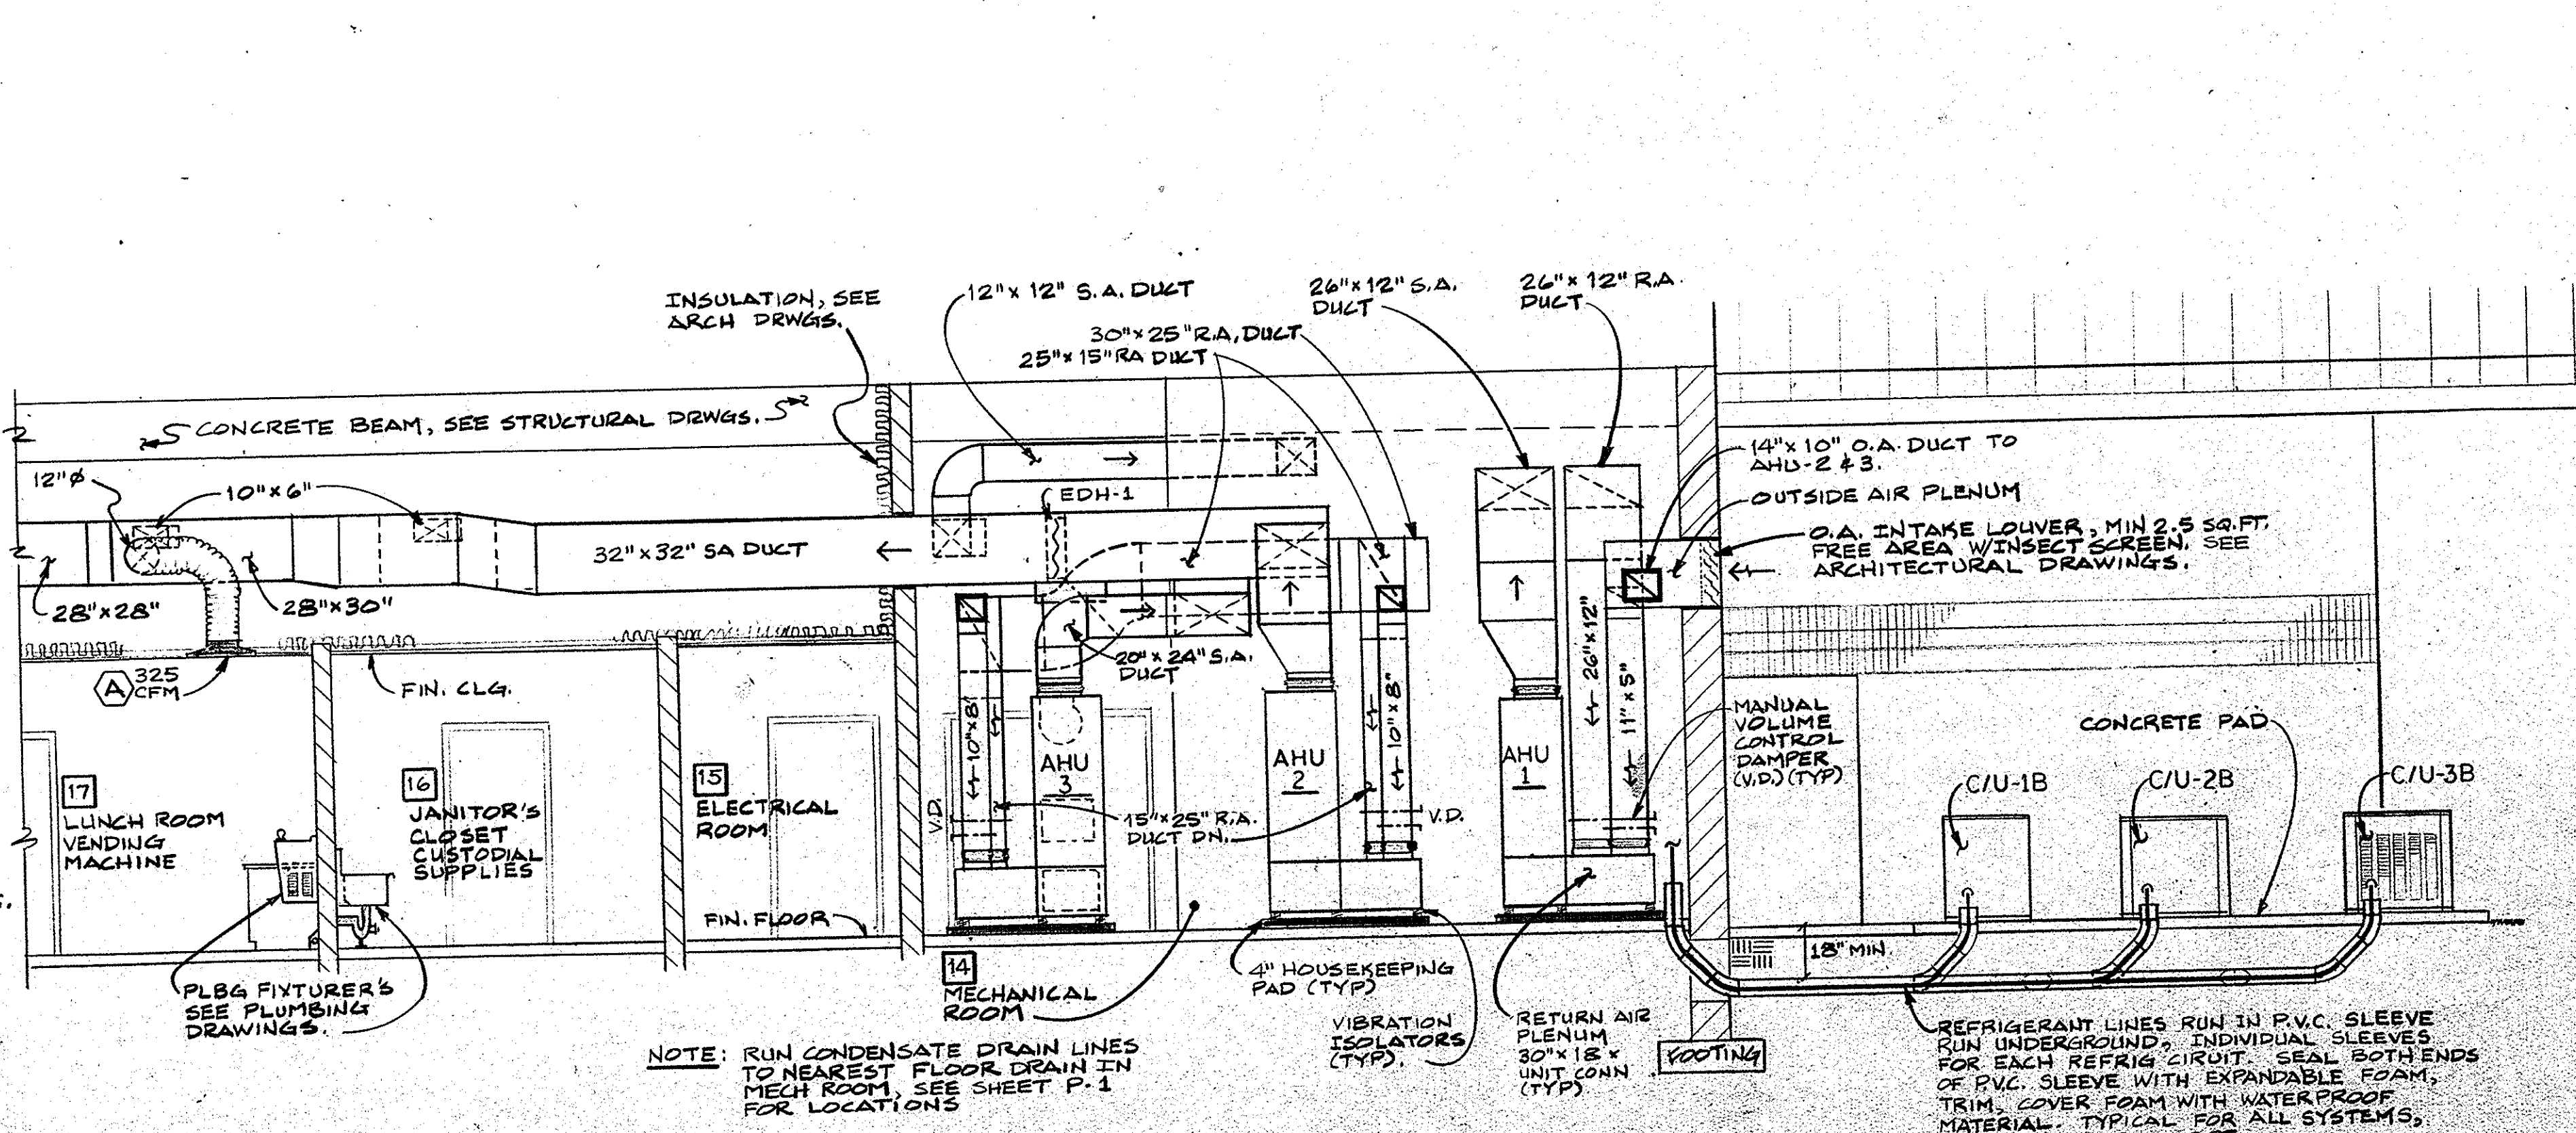 INSULATION, SEE
ARCH DRWGS.
12"x 12" S.A. DUCT
30"x 25" R.A. DUCT
25"x 15" RA DUCT
26"x 12" S.A.
DUCT
26"x 12" R.A.
DUCT
CONCRETE BEAM, SEE STRUCTURAL DRWGS.
12"ø
10"x 6"
EDH-1
32"x 32" SA DUCT
28"x 28"
28"x 30"
14"x 10" O.A. DUCT TO
AHU-2 & 3.
OUTSIDE AIR PLENUM
O.A. INTAKE LOUVER, MIN 2.5 SQ.FT.
FREE AREA W/INSECT SCREEN. SEE
ARCHITECTURAL DRAWINGS.
A
325
CFM
FIN. CLG.
20"x 24" S.A.
DUCT
10"x 8"
10"x 8"
26"x 12"
11"x 5"
MANUAL
VOLUME
CONTROL
DAMPER
(V.D.) (TYP)
CONCRETE PAD
C/U-1B
C/U-2B
C/U-3B
17
LUNCH ROOM
VENDING
MACHINE
16
JANITOR'S
CLOSET
CUSTODIAL
SUPPLIES
15
ELECTRICAL
ROOM
V.D.
AHU
3
AHU
2
AHU
1
15"x 25" R.A.
DUCT DN.
V.D.
FIN. FLOOR
18" MIN.
PLBG FIXTURER'S
SEE PLUMBING
DRAWINGS.
14
MECHANICAL
ROOM
4" HOUSEKEEPING
PAD (TYP)
VIBRATION
ISOLATORS
(TYP).
RETURN AIR
PLENUM
30"x 18 x
UNIT CONN
(TYP)
FOOTING
NOTE: RUN CONDENSATE DRAIN LINES
TO NEAREST FLOOR DRAIN IN
MECH ROOM, SEE SHEET P-1
FOR LOCATIONS
REFRIGERANT LINES RUN IN P.V.C. SLEEVE
RUN UNDERGROUND, INDIVIDUAL SLEEVES
FOR EACH REFRIG CIRUIT. SEAL BOTH ENDS
OF P.V.C. SLEEVE WITH EXPANDABLE FOAM,
TRIM, COVER FOAM WITH WATERPROOF
MATERIAL. TYPICAL FOR ALL SYSTEMS,